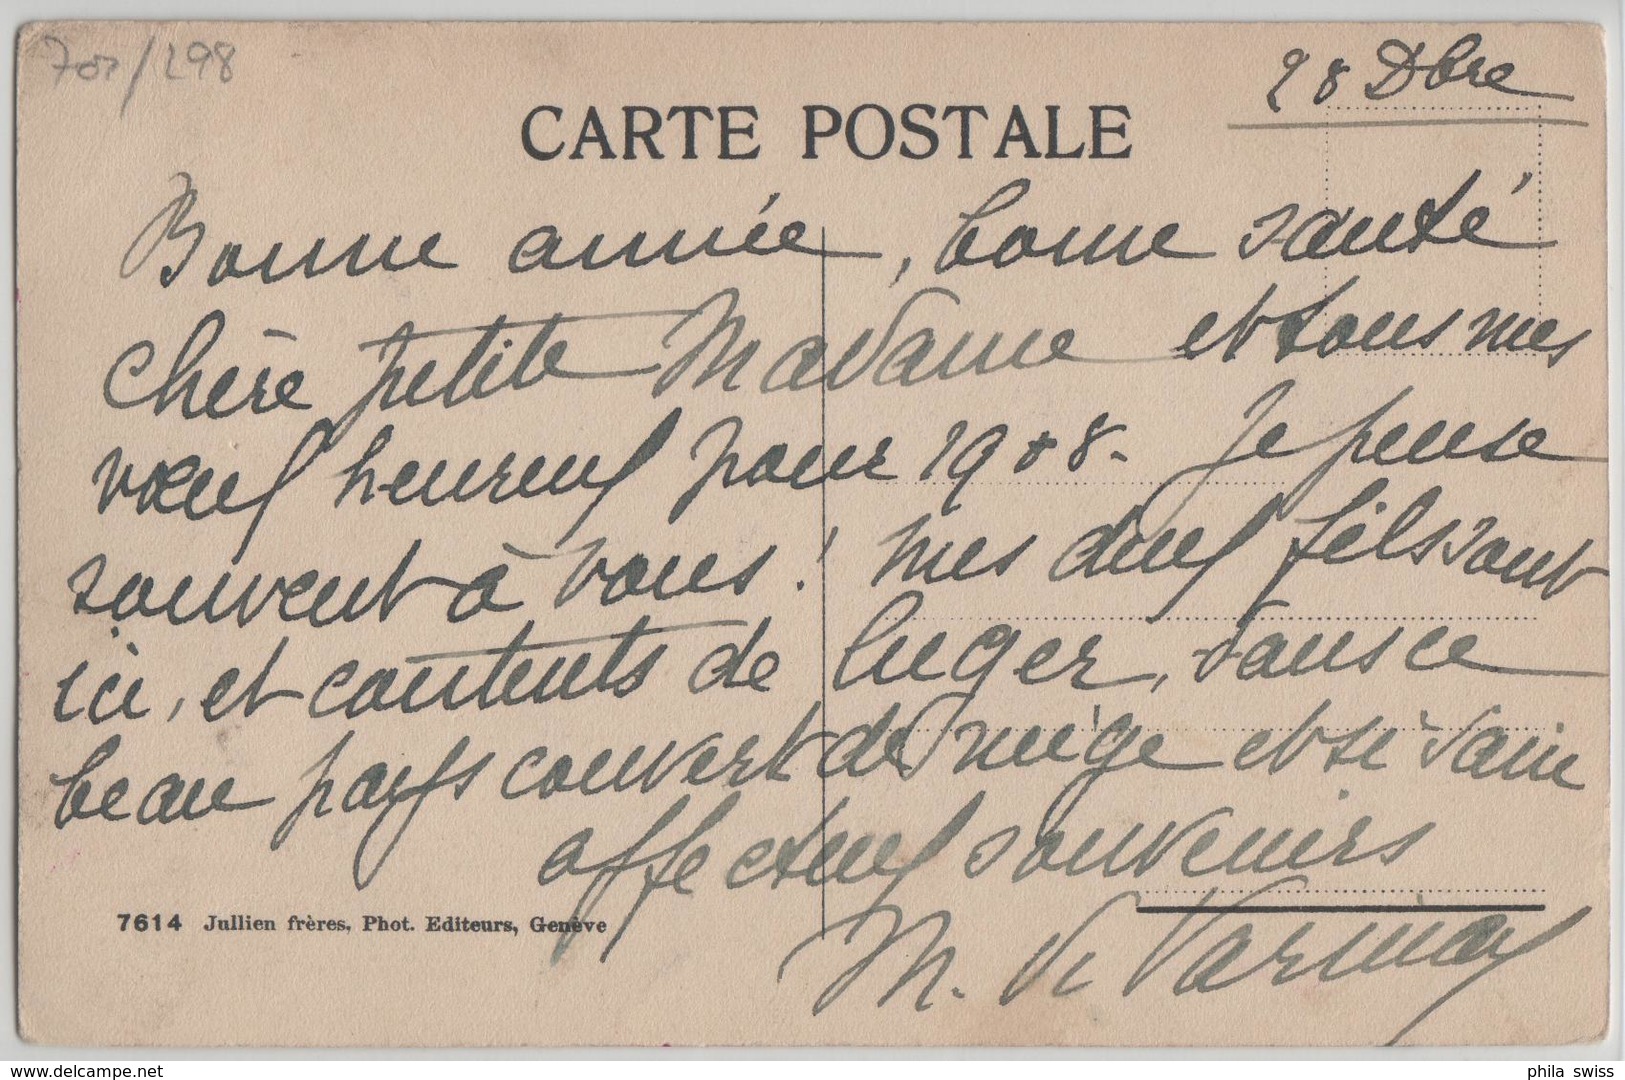 28 Dbre
CARTE POSTALE
Bonne année, bonne santé
chère petite Madame et tous mes
vœux heureux pour 1908. Je pense
souvent à vous! mes deux fils sont
ici, et contents de luger, dans ce
beau pays couvert de neige et si sain
affectueux souvenirs
M. de
7614 Jullien frères, Phot. Editeurs, Genève
phila swiss